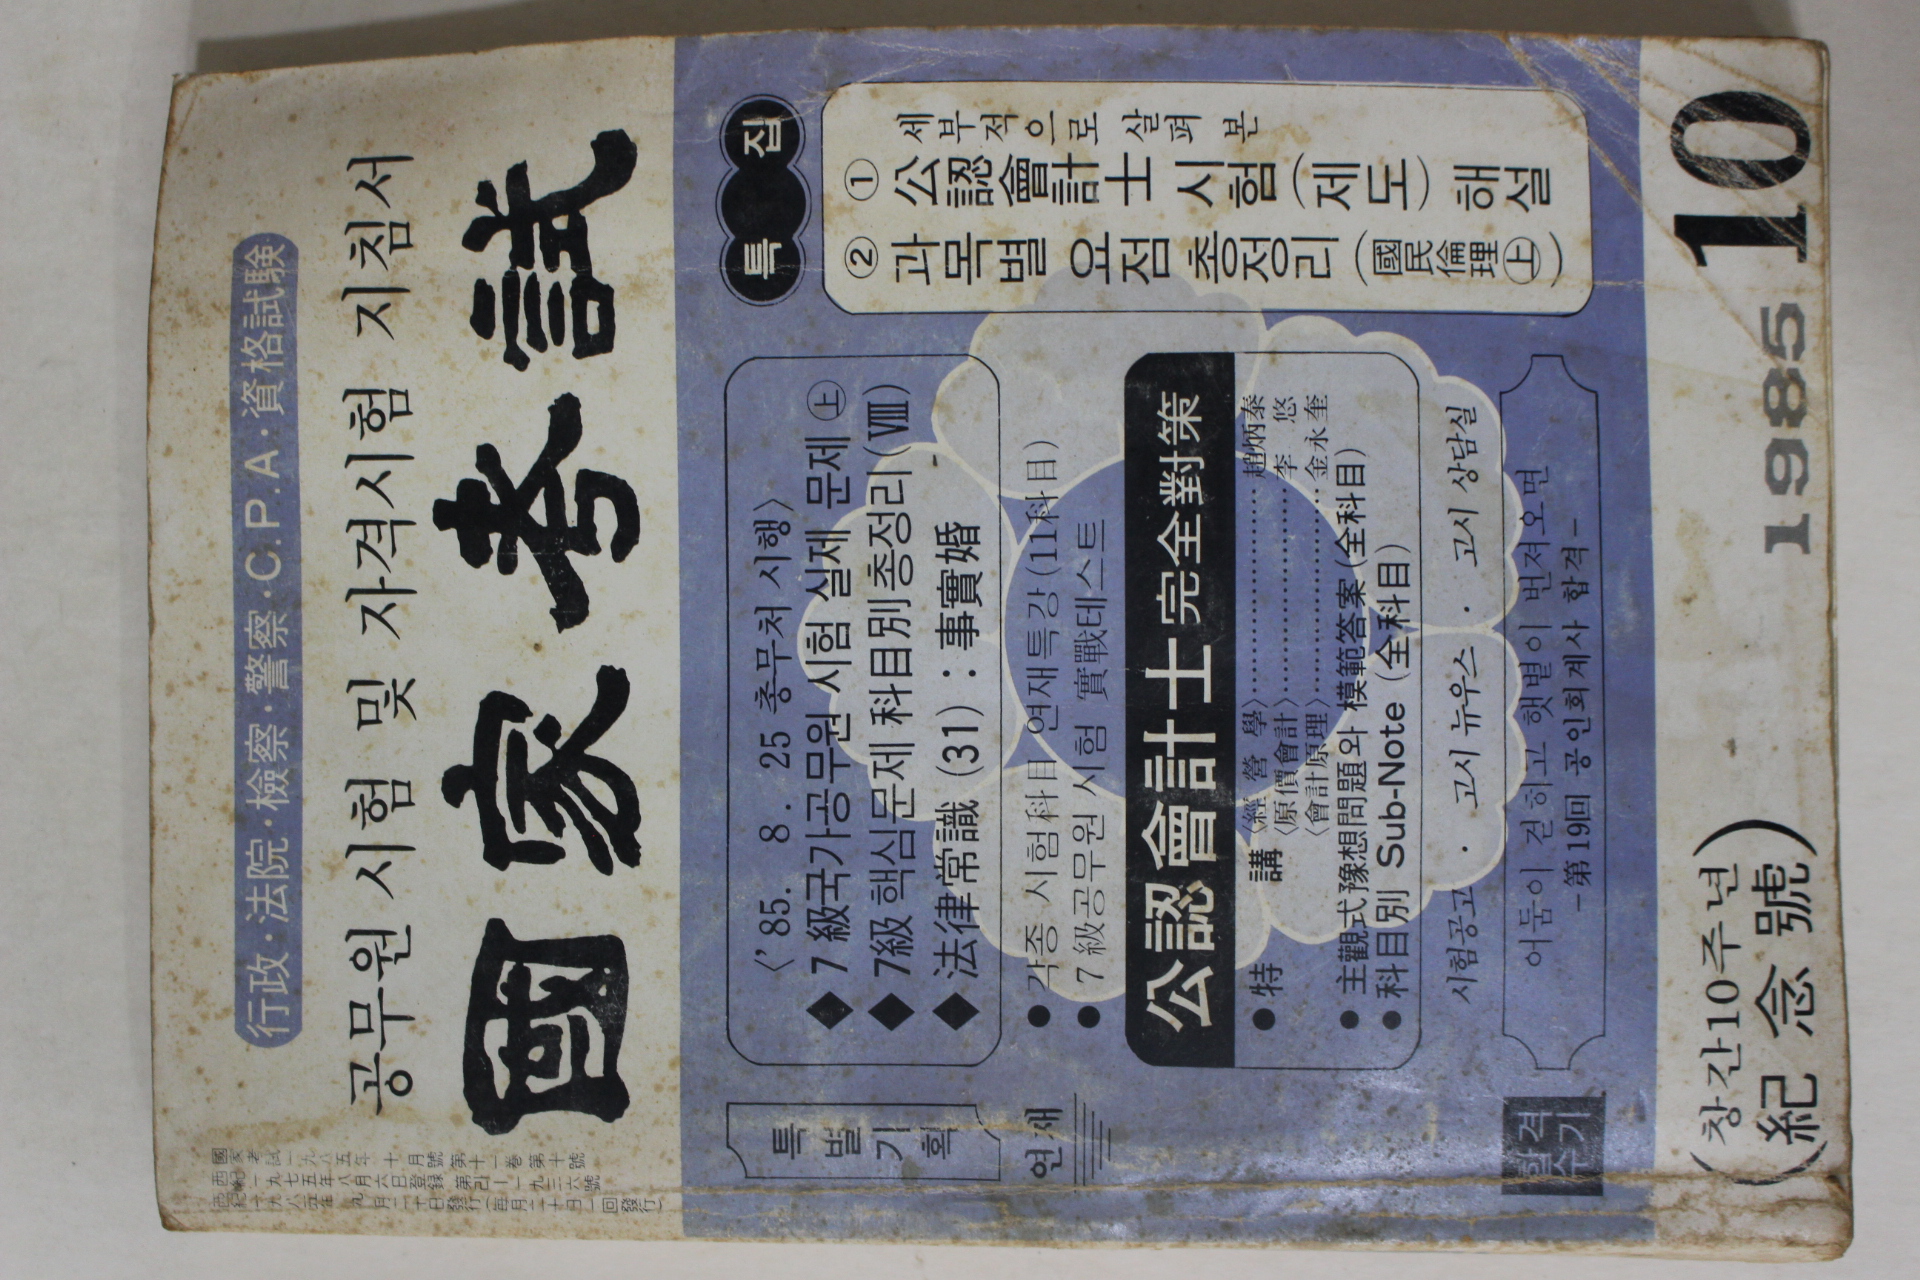 國家考試 一九八五年 十月號 第十一卷 第十號
西紀 一九七五年 八月 六日 登錄 第라-一九三六號
西紀 一九八五年 九月 二十日 發行 (每月 二十日 一回 發行)
行政·法院·檢察·警察·C.P.A·資格試験
공무원 시험 및 자격시험 지침서
國家考試
특집
세부적으로 살펴 본
① 公認會計士 시험(제도) 해설
② 과목별 요점 총정리(國民倫理㊤)
특별기획
〈'85. 8. 25 총무처 시행〉
◆ 7級국가공무원 시험 실제 문제㊤
◆ 7級 핵심문제 科目別총정리(Ⅷ)
◆ 法律常識 (31) : 事實婚
연재
● 각종 시험科目 연재특강(11科目)
● 7級공무원 시험 實戰테스트
公認會計士完全對策
● 特講 〈經營學〉……………趙炳泰
〈原價會計〉……………李 悠
〈會計原理〉……………金永奎
● 主觀式豫想問題와 模範答案(全科目)
● 科目別 Sub-Note (全科目)
시험공고 · 고시 뉴우스 · 고시 상담실
합격수기
어둠이 걷히고 햇볕이 번져오면
-第19回 공인회계사 합격-
(창간10주년)
(紀念號)
1985 10